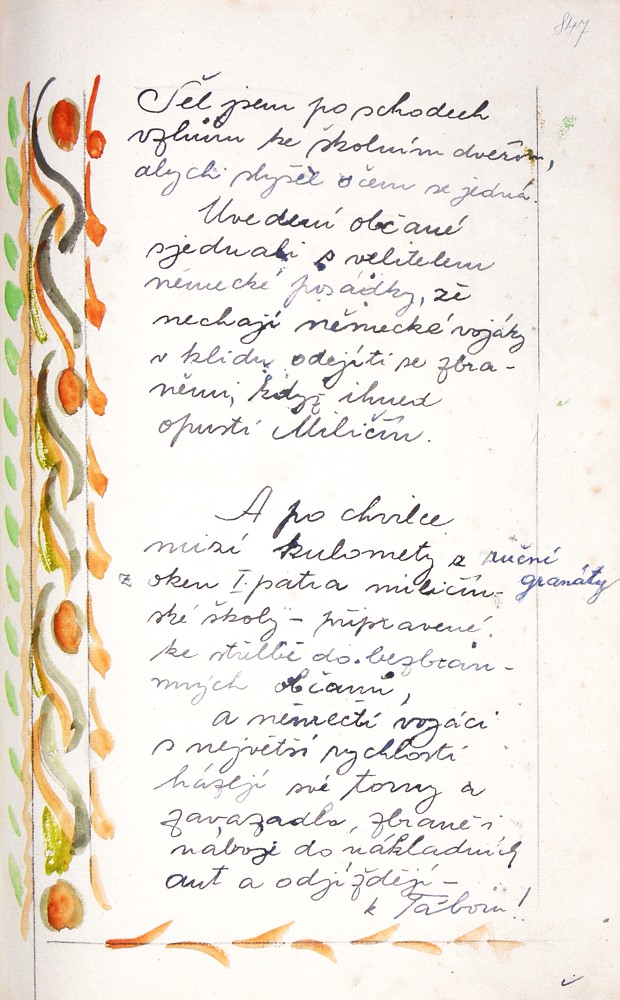 847
Šel jsem po schodech
vzhůru ke školním dveřím,
abych slyšel o čem se jedná.
Uvedení občané
sjednali s velitelem
německé posádky, že
nechají německé vojáky
v klidu odejíti se zbra-
němi, když ihned
opustí Miličín.
A po chvilce
mizí kulomety a ruční
granáty
z oken I. patra miličín-
ské školy - připravené
ke střelbě do bezbran-
ných občanů,
a němečtí vojáci
s největší rychlostí
házejí své torny a
zavazadla, zbraně i
náboje do nákladních
aut a odjíždějí -
k Táboru!